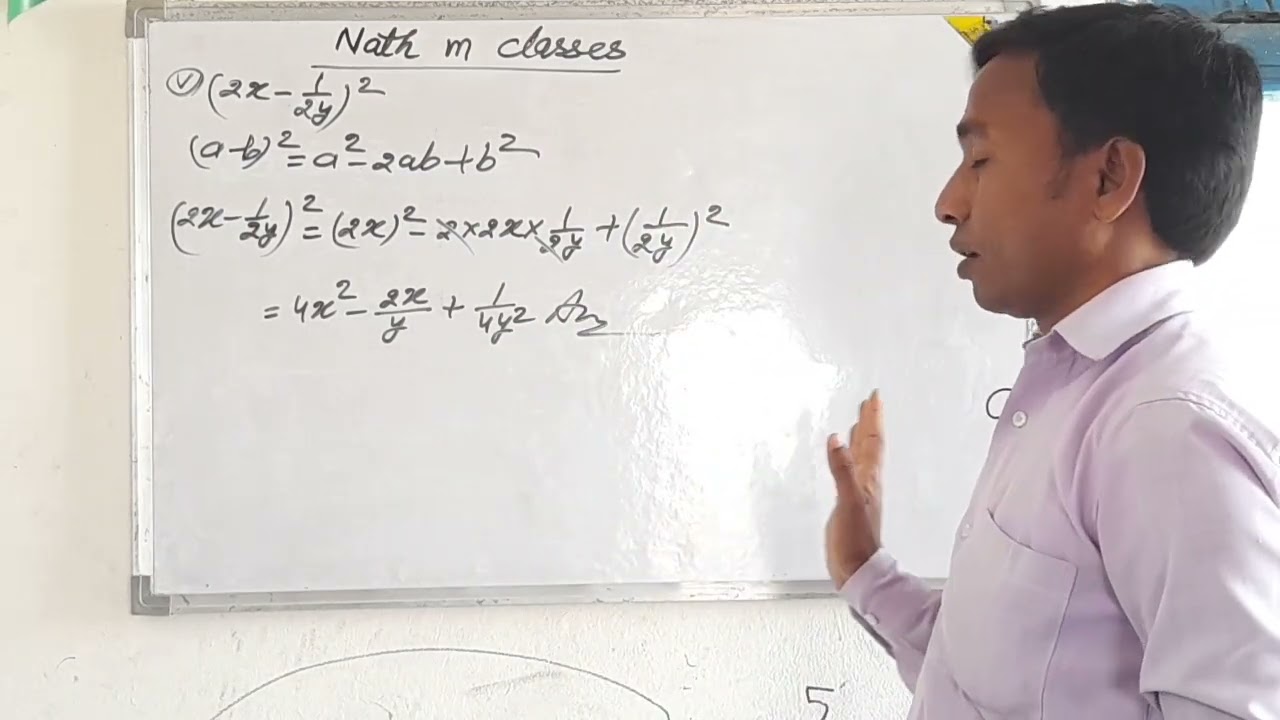 Nath m classes
(v) (2x - 1/2y)²
(a-b)² = a² - 2ab + b²
(2x - 1/2y)² = (2x)² - 2 × 2x × 1/2y + (1/2y)²
= 4x² - 2x/y + 1/4y² Ans
5